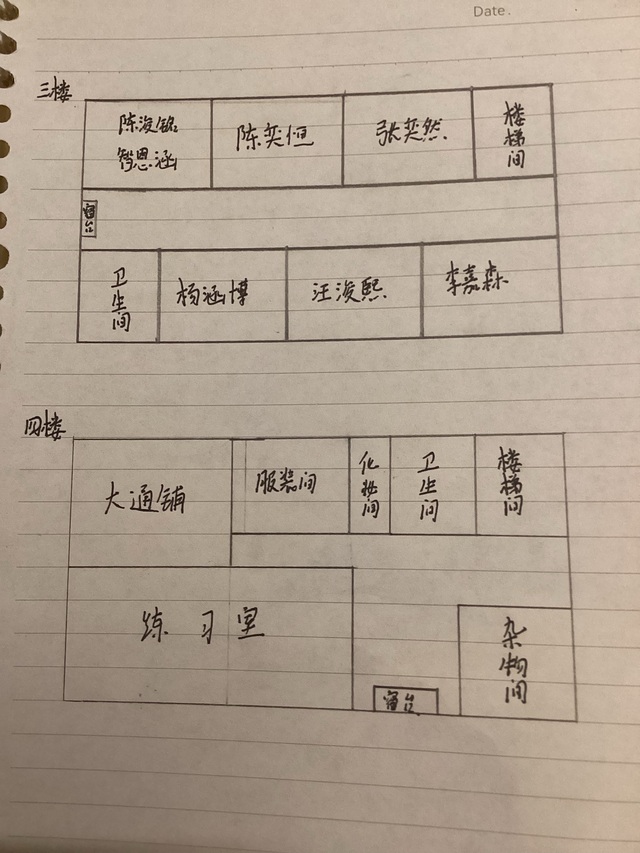 Date.
三楼
陈浚铭
智恩涵
陈奕恒
张奕然
楼梯间
窗台
卫生间
杨涵博
汪浚熙
李嘉森
四楼
大通铺
服装间
化妆间
卫生间
楼梯间
练习室
窗台
杂物间